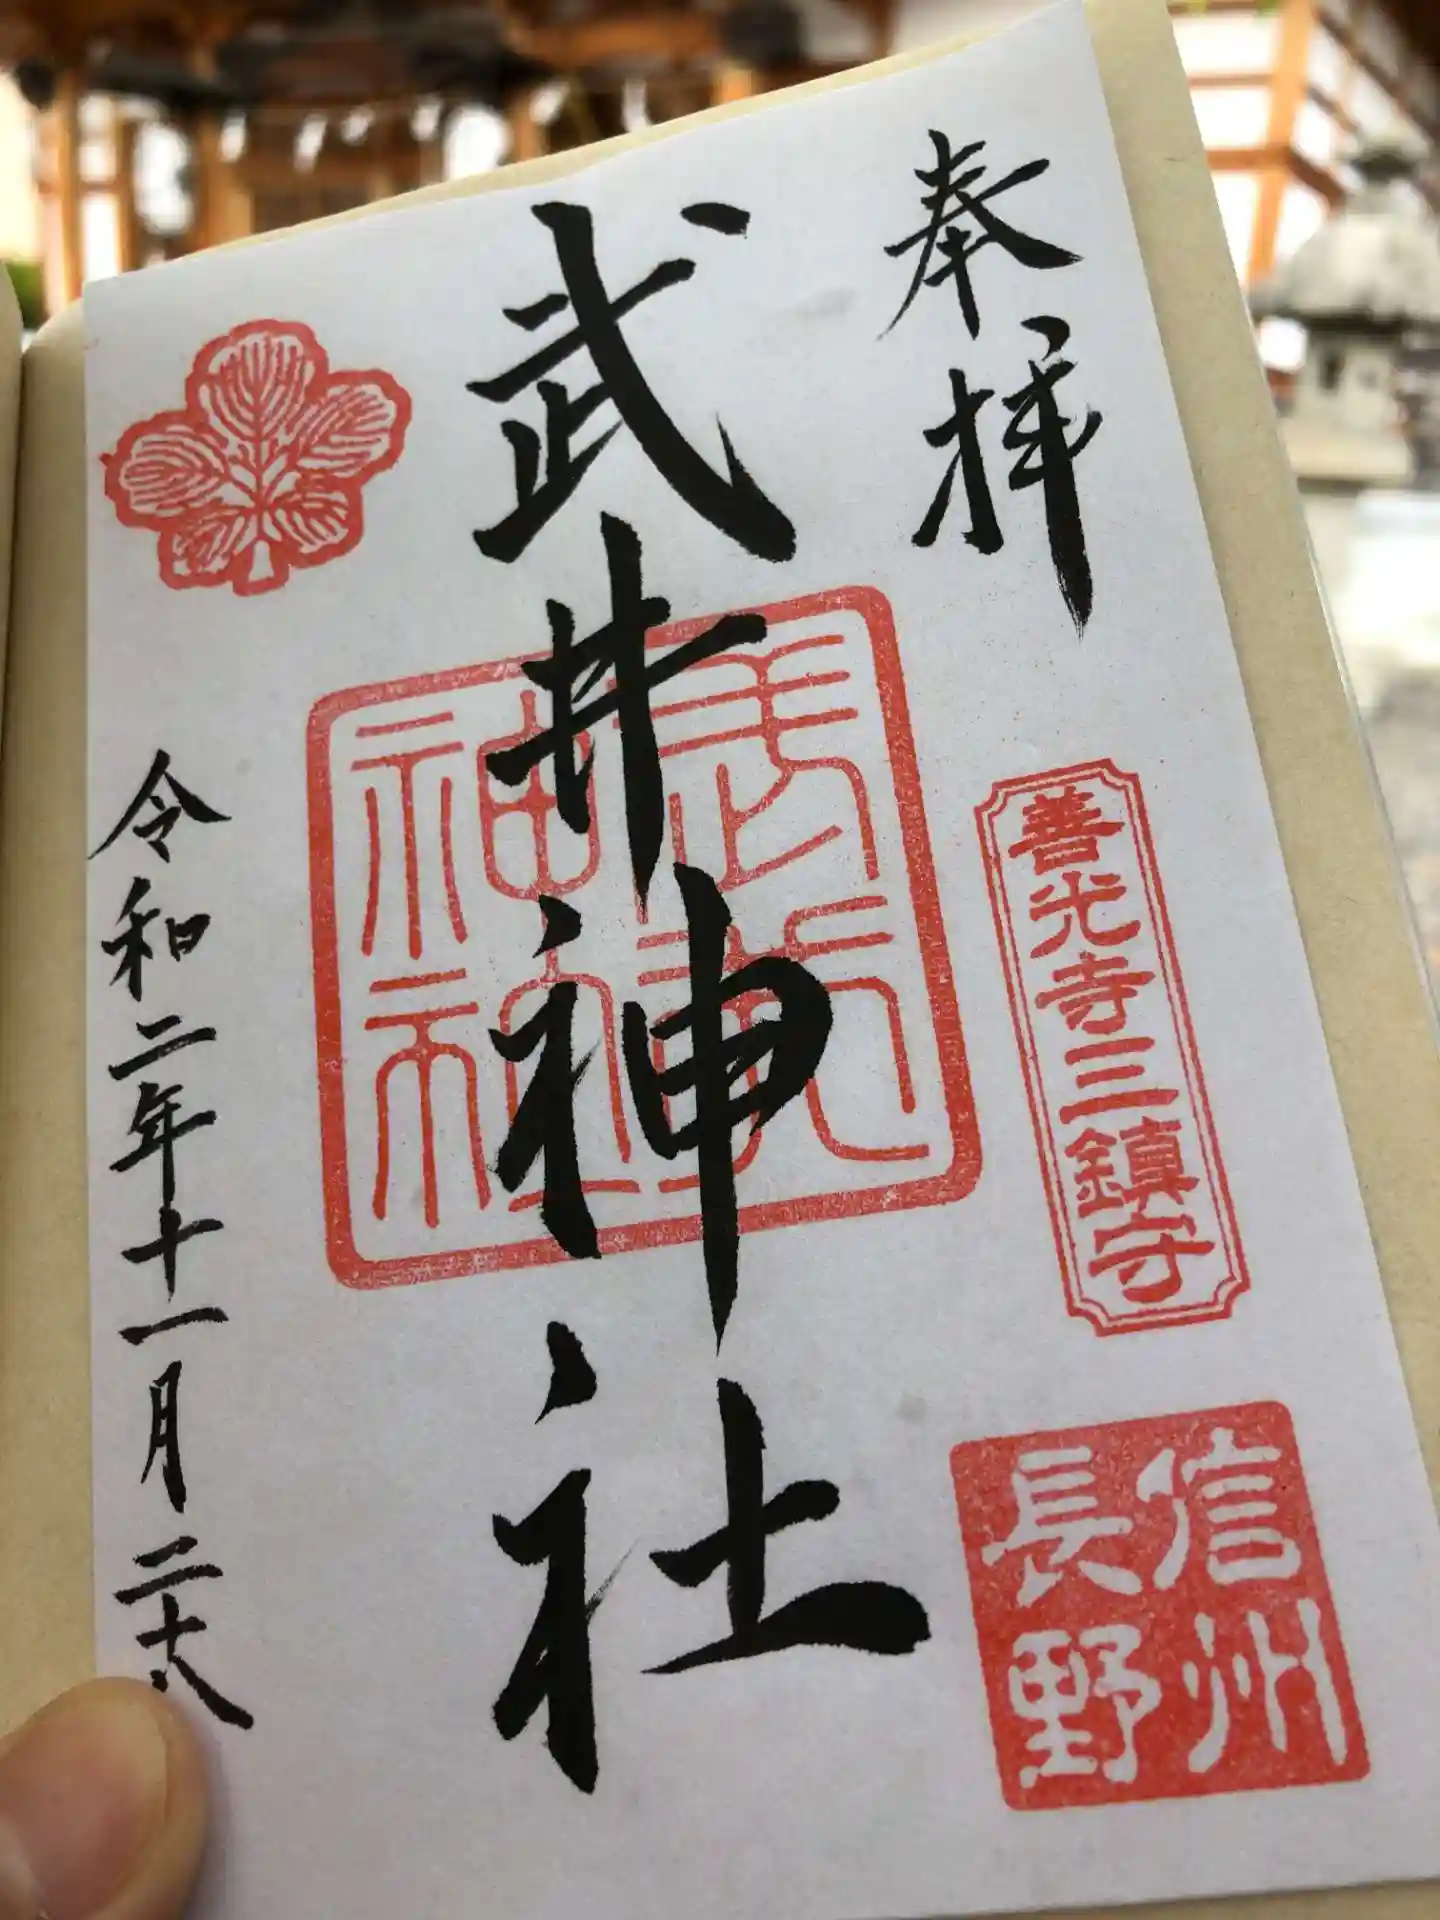 奉拝
善光寺三鎮守
信州
長野
武井神社
令和二年十一月二十八